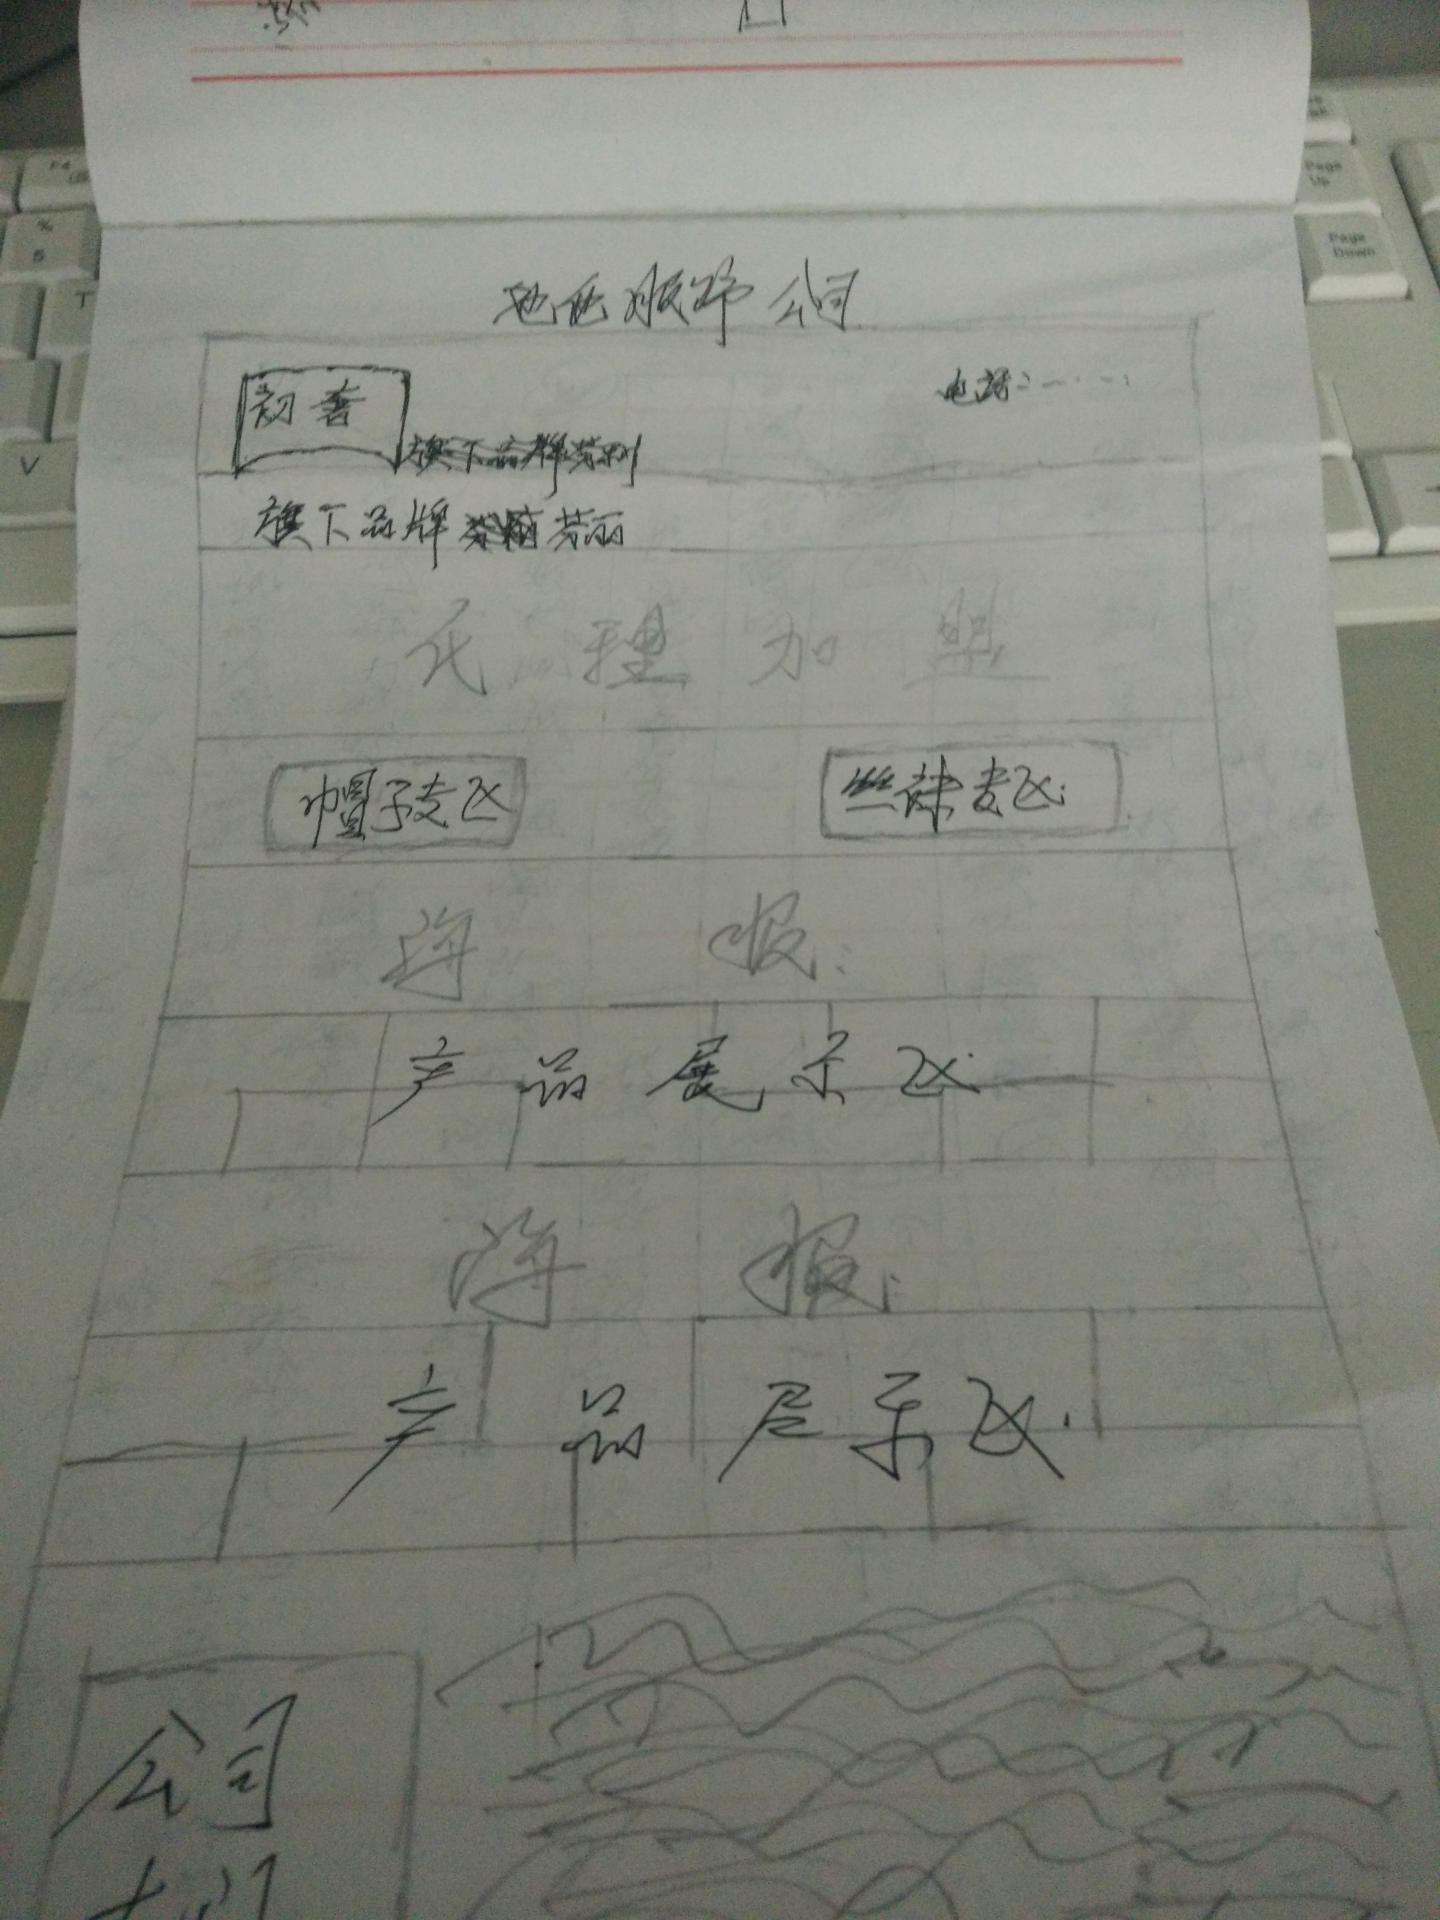 服饰公司
初春
电话:
旗下品牌芳丽
代理加盟
帽子专区 丝袜专区
海报
产品展示区
海报
产品展示区
公司